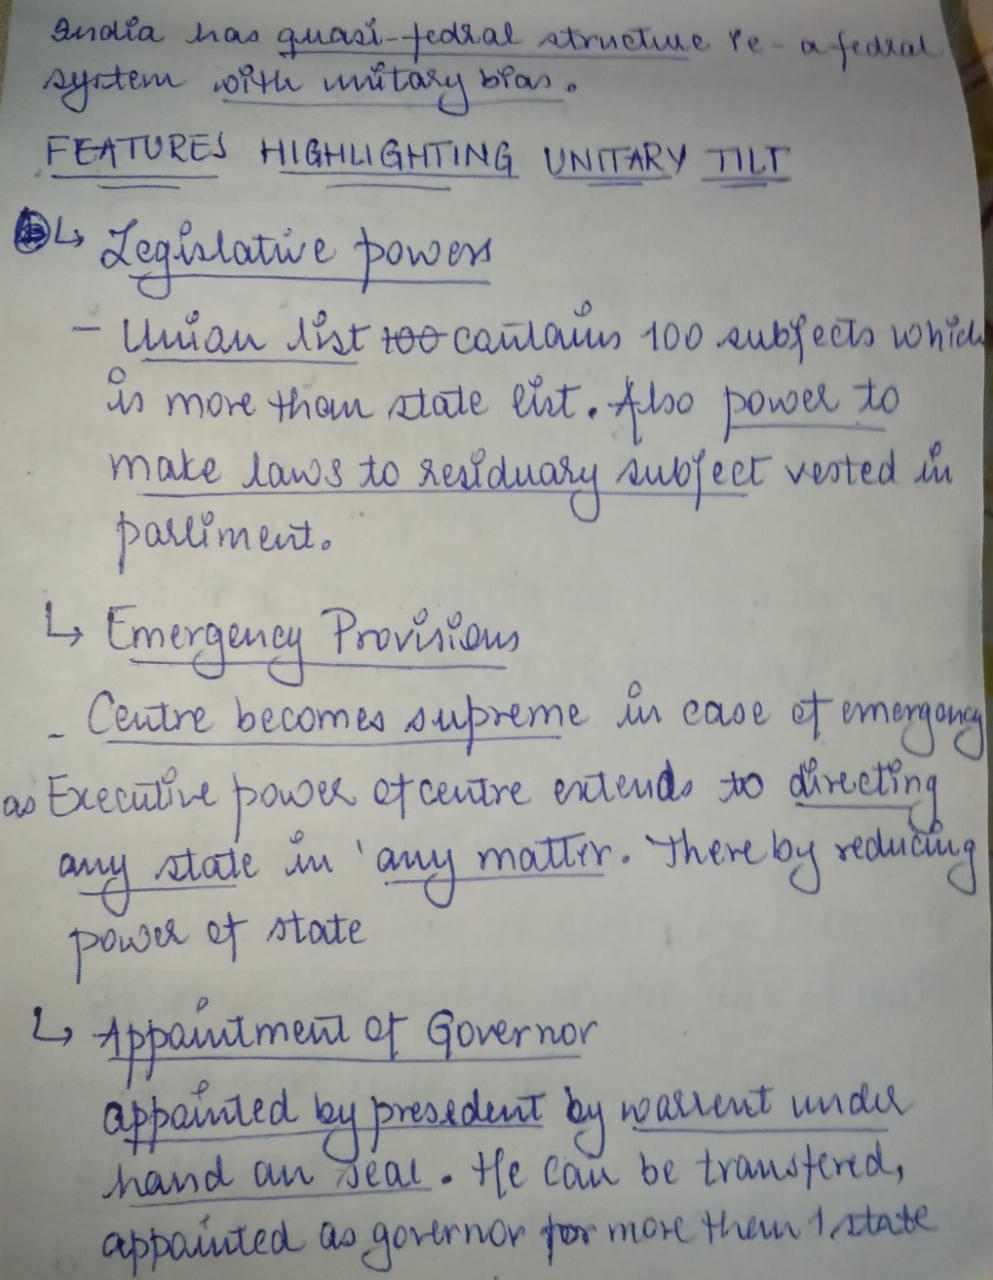 India has quasi-fedral structure ie - a fedral
system with unitary bias.
FEATURES HIGHLIGHTING UNITARY TILT
↳ Legislative powers
- Union list 100 contains 100 subjects which
is more than state list. Also power to
make laws to residuary subject vested in
parliment.
↳ Emergency Provisions
- Centre becomes supreme in case of emergency
as Executive power of centre extends to directing
any state in 'any matter. Thereby reducing
power of state
↳ Appointment of Governor
appointed by president by warrent under
hand an seal. He can be transfered,
appointed as governor for more them 1 state